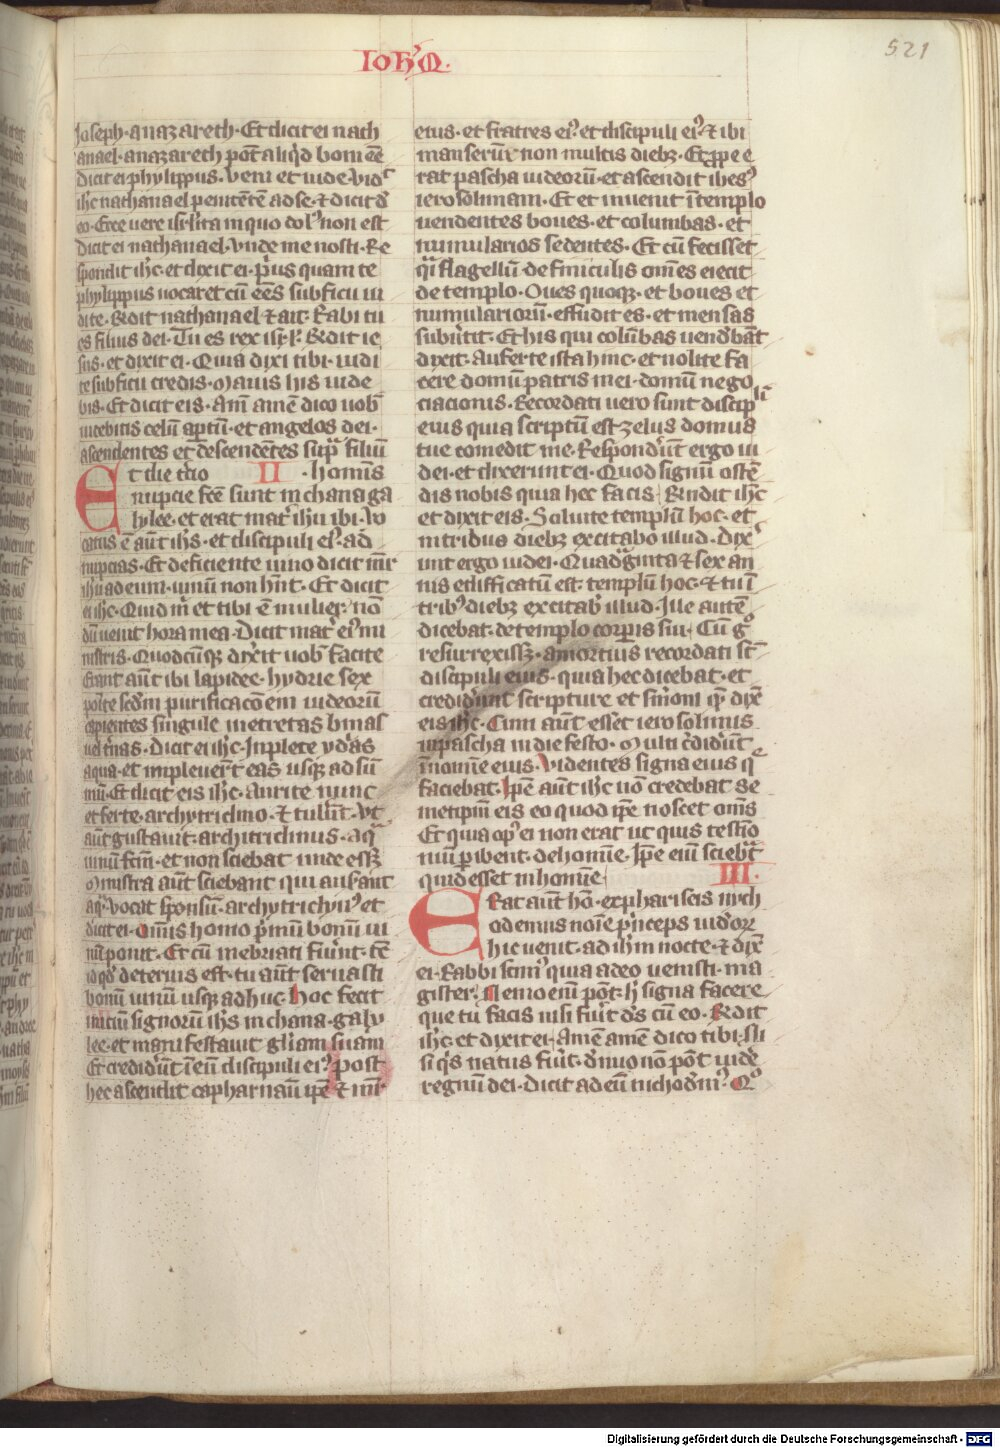 521
Ioh'es.
Joseph· a nazareth· Et dicit ei nath
anael· a nazareth pōt aliq̄d boni eē
Dicit ei phylippus· veni et uide· Vid'
ih̄c nathanael ueniētē ad se· ⁊ dicit d'
eo· Ecce uere isrl'ita in quo dol' non est
Dicit ei nathanael· Vnde me nosti· Re
spondit ih̄c· et dixit ei· p'us quam te
phylippus uocaret cū eēs sub ficu ui
di te· R̄dit nathanael ⁊ ait· Rabi tu
es filius dei· Tu es rex isr̄l· R̄dit ie
sus· et dixit ei· Quia dixi tibi· uidi
te sub ficu credis· Maius his uide
bis· Et dicit eis· Am̄ amē dico uob'
uidebitis celū ap̄tū· et angelos dei·
ascendentes et descendētes sup̄ filiū
Et die t'cio II · hominis
nupcie fcē sunt in chana ga
lylee· et erat mat' ih̄u ibi· Vo
catus ē aūt ih̄s· et discipuli ei'· ad
nupcias· Et deficiente uino dicit m̄r
ih̄u ad eum· uinū non hn̄t· Et dicit
ei ih̄c· Quid m̄ et tibi ē mulier· nō
dū uenit hora mea· Dicit mat' ei' mi
nistris· Quodcūqȝ dixerit uob' facite
Erant aūt ibi lapidee· hydrie sex
posite scd̄m purificacōem iudeorū
capientes singule metretas binas
uel t'nas· Dicit ei ih̄c· Inplete ydr̄as
aqua· et impleuer̄t eas usqȝ ad sū
mū· Et dicit eis ih̄c· Aurite nunc
et ferte· archytriclino· ⁊ tuler̄t· Vt
aūt gustauit· architriclinus· aq̄
uinū fc̄m· et non sciebat unde essȝ
Ministri aūt sciebant qui auserant
aq̄· vocat sponsū· archytriclyn' et
dicit ei· Omnis homo p'mū bonū ui
nū ponit· Et cū inebriati fuīnt· tē
id qd' deterius est· tu aūt seruasti
bonū uinū usqȝ adhuc· Hoc fecit
initiū signorū ih̄s in chana· galy
lee· et manifestauit gl'iam suam
Et credider̄t ī eū discipuli ei'· Post
hec ascendit capharnaū ip̄e ⁊ m̄r
eius· et fratres ei'· et discipuli ei'· ⁊ ibi
manserūt non multis diebȝ· Et p̄pe e
rat pascha iudeorū· et ascendit ihes'
ierosolimam· Et et inuenit ī templo
uendentes boues· et columbas· et
numularios sedentes· Et cū fecisset
q̄i flagellū· de finiculis om̄es eiecit
de templo· Oues quoqȝ· et boues et
numulariorū· effudit es· et mensas
subu'tit· Et his qui colūbas uend'bāt
dixit· Auferte ista hinc· et nolite fa
cere domū patris mei· domū nego
ciacionis· Recordati uero sunt discip'li
eius quia scriptū est· zelus domus
tue comedit me· Respond'ūt ergo iu
dei· et dixerunt ei· Quod signū ostē
dis nobis quia hec facis· R̄ndit ih̄c
et dixit eis· Soluite templū hoc· et
in tribus diebȝ excitabo illud· Dixer
unt ergo iudei· Quadḡinta ⁊ sex an
nis edifficatū est· templū hoc· ⁊ tu ī
trib' diebȝ excitab' illud· Ille autē
dicebat· de templo corp̄is sui· Cū g°
resurrexissȝ· a mortuis recordati sūt
discipuli eius· quia hec dicebat· et
crediderūnt scripture et s'moni q̄ dix'
eis ih̄c· Cum aūt esset ierosolimis
in pascha in die festo· Multi c'dider̄t
ī nomine eius· Videntes signa eius q̄
faciebat· Ipē aūt ih̄c nō credebat se
metip̄m eis eo quod ip̄e nosset om̄s
Et quia op' ei non erat ut quis testīo
niū p̄hibent· de homīe· Ip̄e eni sciebat
quid esset in homīe III·
Erat aūt hō· ex phariseis nych
odemus noīe p'nceps iudeor'
hic uenit· ad ih̄m nocte· ⁊ dix'
ei· Rabbi scim' quia a deo uenisti· ma
gister· Nemo eni pōt· h' signa facere
que tu facis nisi fu'it d's cū eo· R̄dit
ih̄c· et dixit ei· Amē amē dico tibi· ni
si q's natus fu'it· denuo nō pōt uid'e
regnū dei· Dicit ad eū nichod'm'· Q°
Digitalisierung gefördert durch die Deutsche Forschungsgemeinschaft - DFG